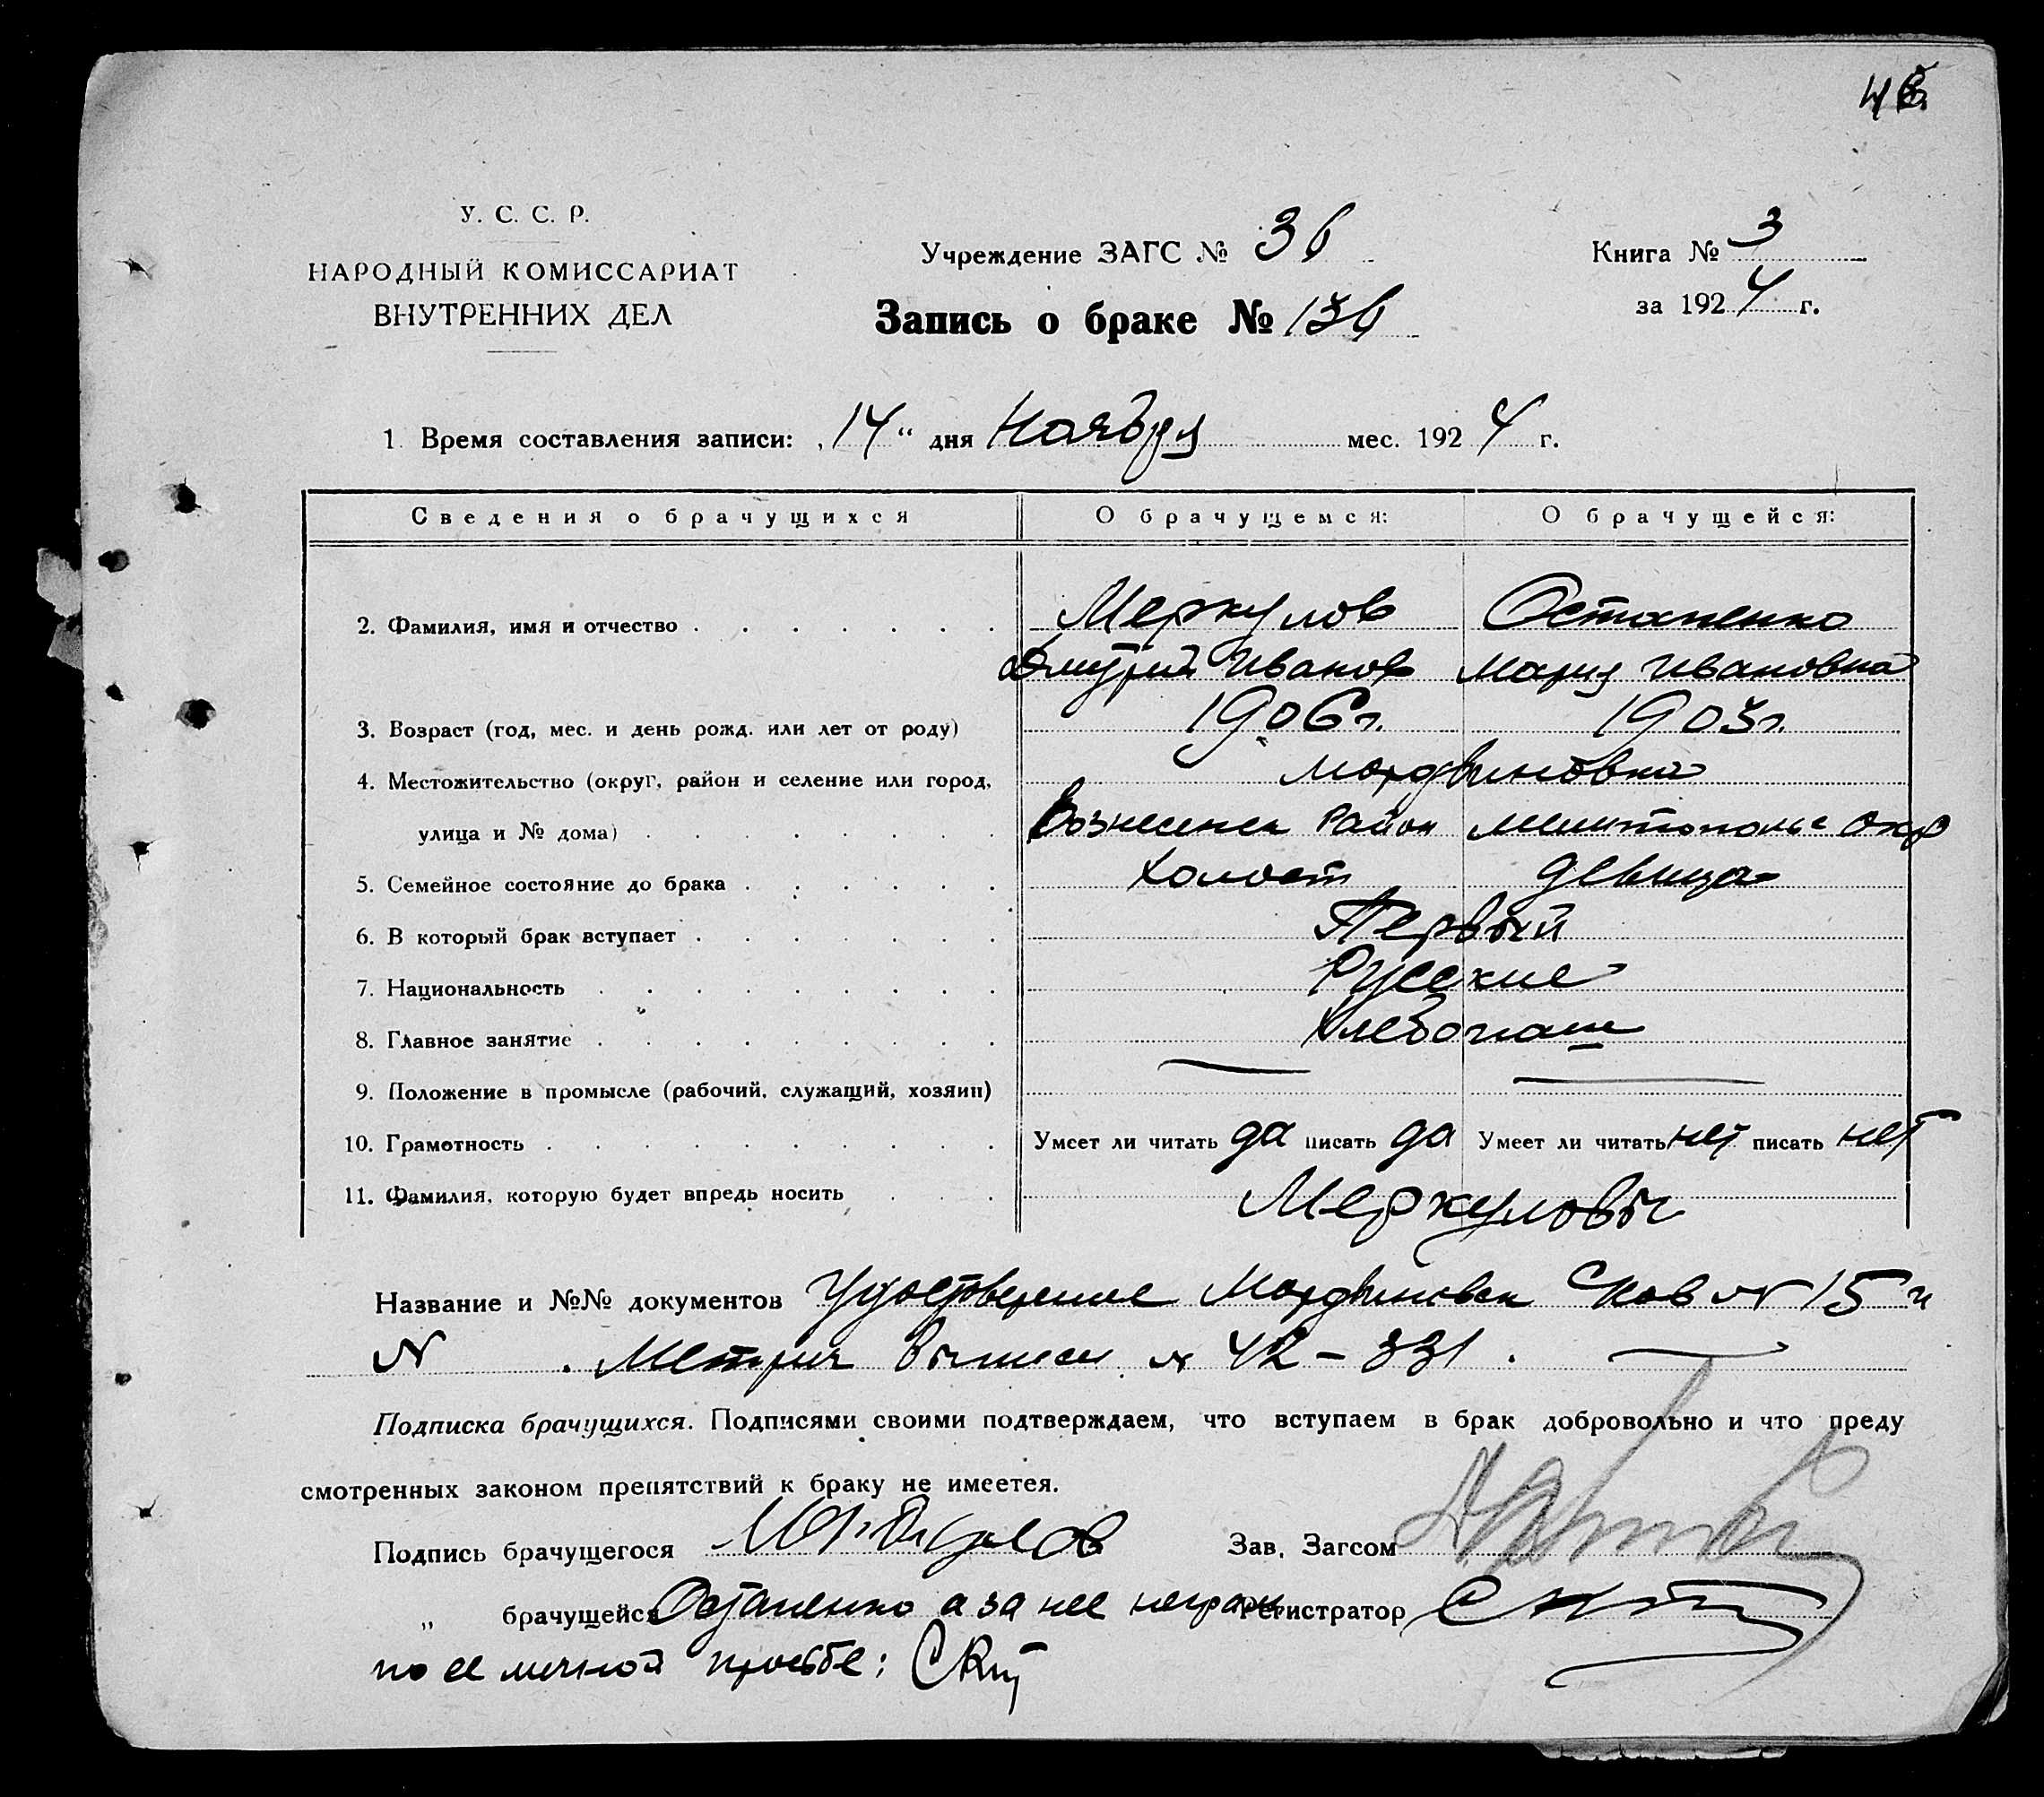 48.
У. С. С. Р.
НАРОДНЫЙ КОМИССАРИАТ
ВНУТРЕННИХ ДЕЛ
Учреждение ЗАГС № 36
Запись о браке № 136
Книга № 3
за 1924 г.
1. Время составления записи: „14“ дня Ноября мес. 1924 г.
Сведения о брачущихся О брачущемся: О брачущейся:
2. Фамилия, имя и отчество Меркулов Остапенко
Дмитрий Иванов Мария Ивановна
3. Возраст (год, мес. и день рожд. или лет от роду) 1906 г. 1903 г.
4. Местожительство (округ, район и селение или город, Мордвиновка
улица и № дома) Вознесенск район Мелитопольс окр
5. Семейное состояние до брака Холост девица
6. В который брак вступает Первый
7. Национальность Русские
8. Главное занятие Хлебопаш
9. Положение в промысле (рабочий, служащий, хозяин) — —
10. Грамотность Умеет ли читать да писать да Умеет ли читать нет писать нет
11. Фамилия, которую будет впредь носить Меркуловы
Название и №№ документов Удостверение Мордвиновск № 15 и
№ . Метрич выписи № 42 – 331 . —
Подписка брачущихся. Подписями своими подтверждаем, что вступаем в брак добровольно и что преду
смотренных законом препятствий к браку не имеетея.
Подпись брачущегося Зав. Загсом
„ брачущейся Остапенко а за нее неграм Регистратор
по ее личной просьбе: